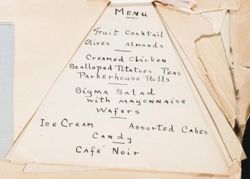 Menu
Fruit Cocktail
Olives Almonds
Creamed Chicken
Scalloped Potatoes Peas
Parkerhouse Rolls
Sigma Salad
with mayonnaise
Wafers
Ice Cream Assorted Cakes
Candy
Café Noir